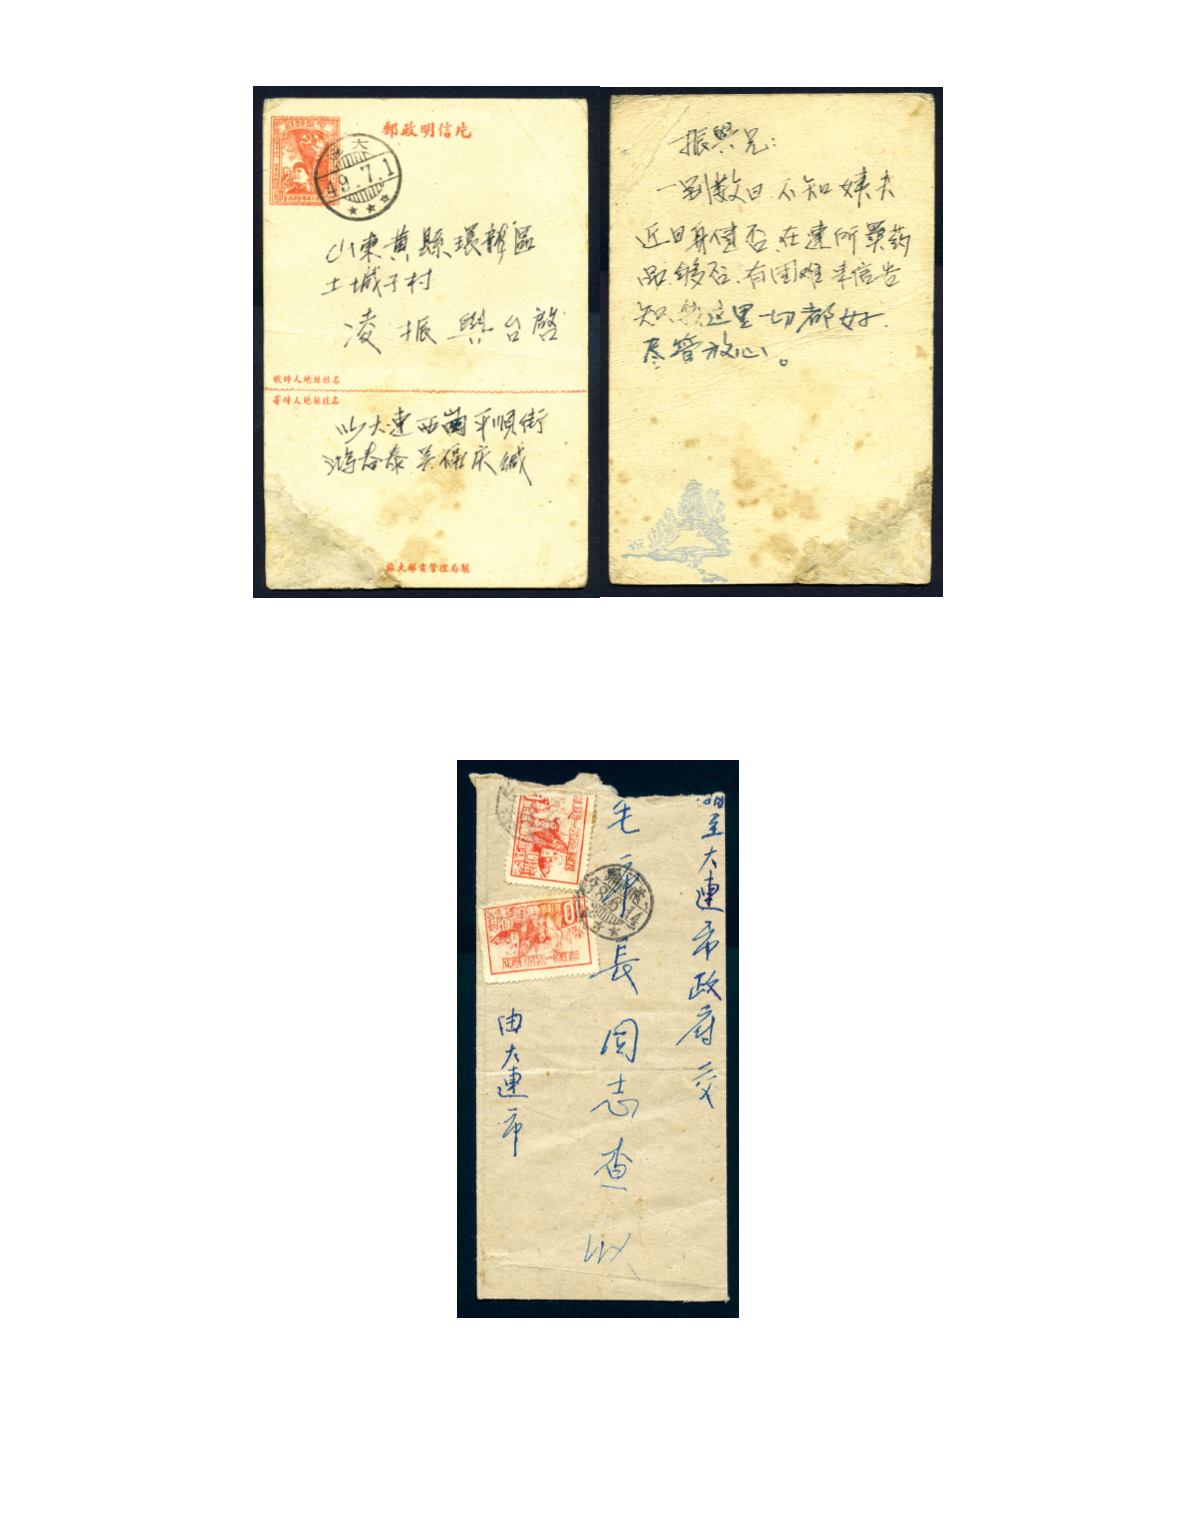 郵政明信片
大
49.7.1
山東黄縣環韓區
土城子村
凌振興台啓
收件人地址姓名
寄件人地址姓名
大連西崗平順街
鴻春泰吴保庆缄
旅大邮電管理局製
振興兄:
一别数日不知姨夫
近日身健否、在連所買药
品够否、有困难来信告
知、我这里一切都好、
尽管放心。
至大連市政府交
毛市長同志查收
38.6.14
由大連市